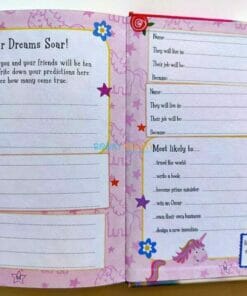 r Dreams Soar!
you and your friends will be ten
rite down your predictions here
ee how many come true.
Name
They will live in
Their job will be
Because
Name
They will live in
Their job will be
Because
Most likely to...
...travel the world
...write a book
...become prime minister
...win an Oscar
...own their own business
...design a new invention